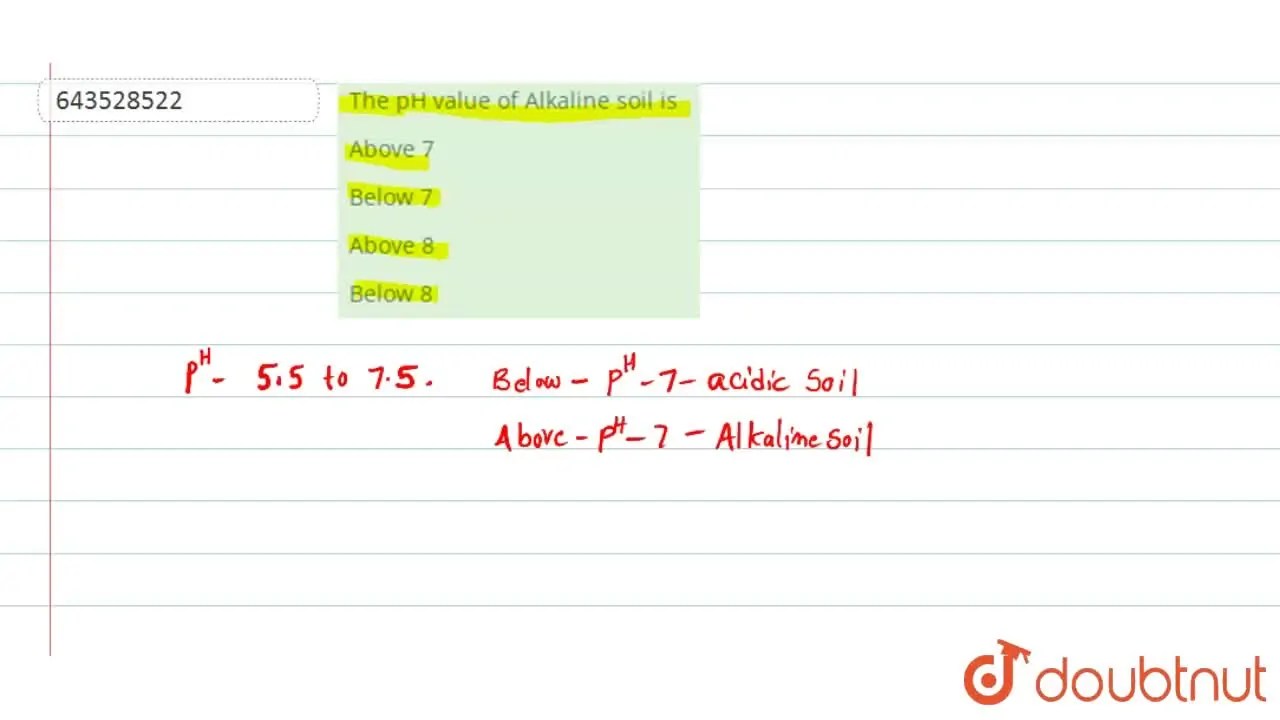 643528522
The pH value of Alkaline soil is
Above 7
Below 7
Above 8
Below 8
pH - 5.5 to 7.5.
Below - pH - 7 - acidic Soil
Above - pH - 7 - Alkaline Soil
doubtnut